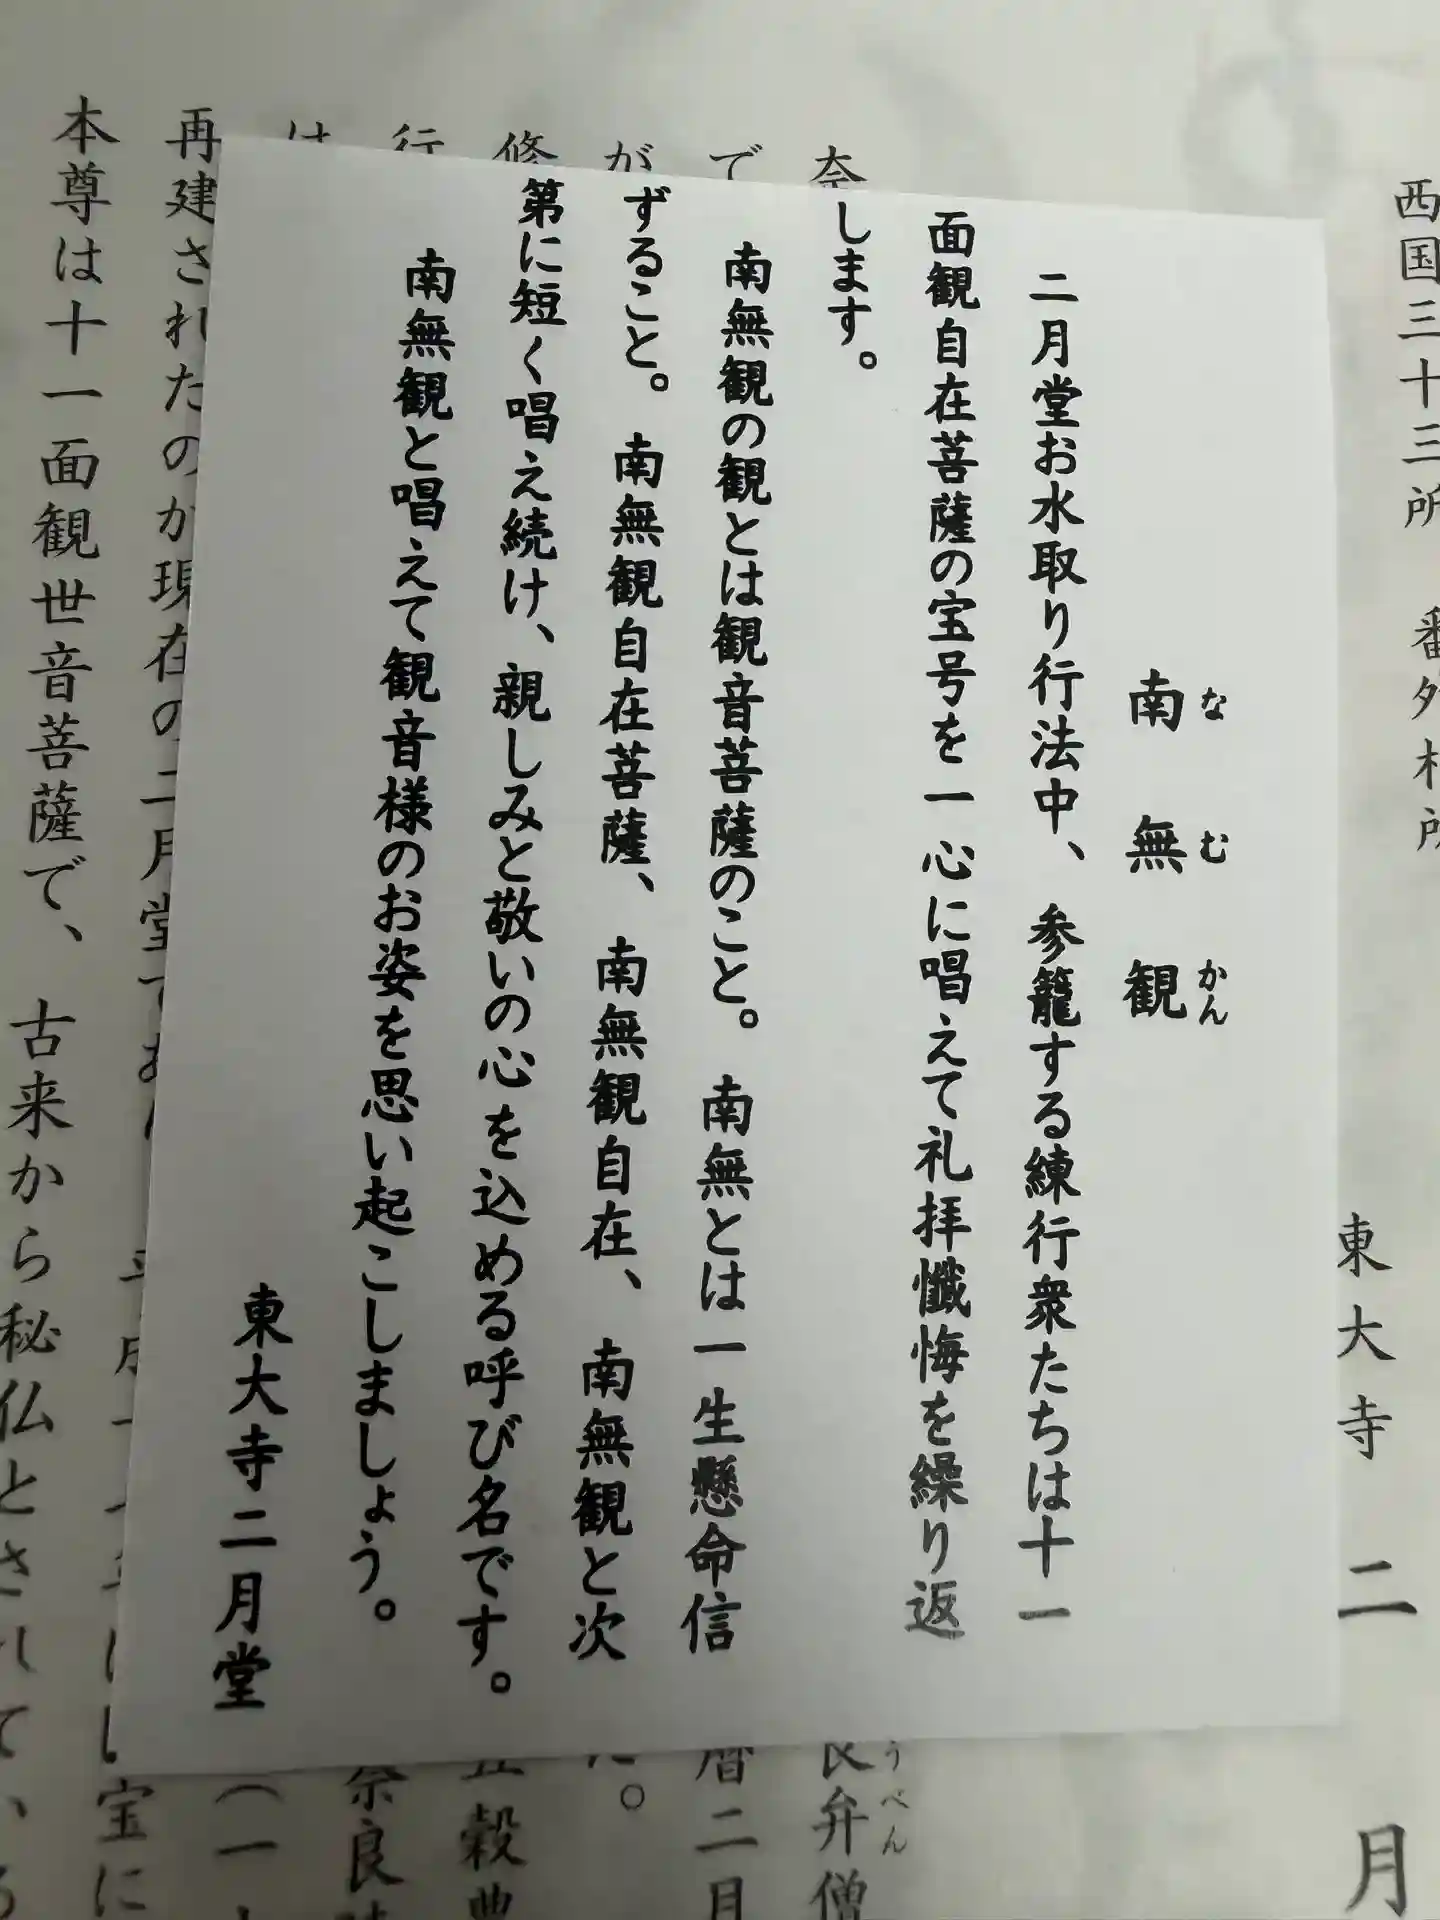 西国三十三所
東大寺 二月
南無観
なむかん
二月堂お水取り行法中、参籠する練行衆たちは十一
面観自在菩薩の宝号を一心に唱えて礼拝懺悔を繰り返
します。
南無観の観とは観音菩薩のこと。南無とは一生懸命信
ずること。南無観自在菩薩、南無観自在、南無観と次
第に短く唱え続け、親しみと敬いの心を込める呼び名です。
南無観と唱えて観音様のお姿を思い起こしましょう。
東大寺二月堂
奈
良弁僧
うべん
で
暦二月
が
た。
修
五穀
行
奈良
は
再建されたのが現在の二月堂
宝に
本尊は十一面観世音菩薩で、古来から秘仏とされて、